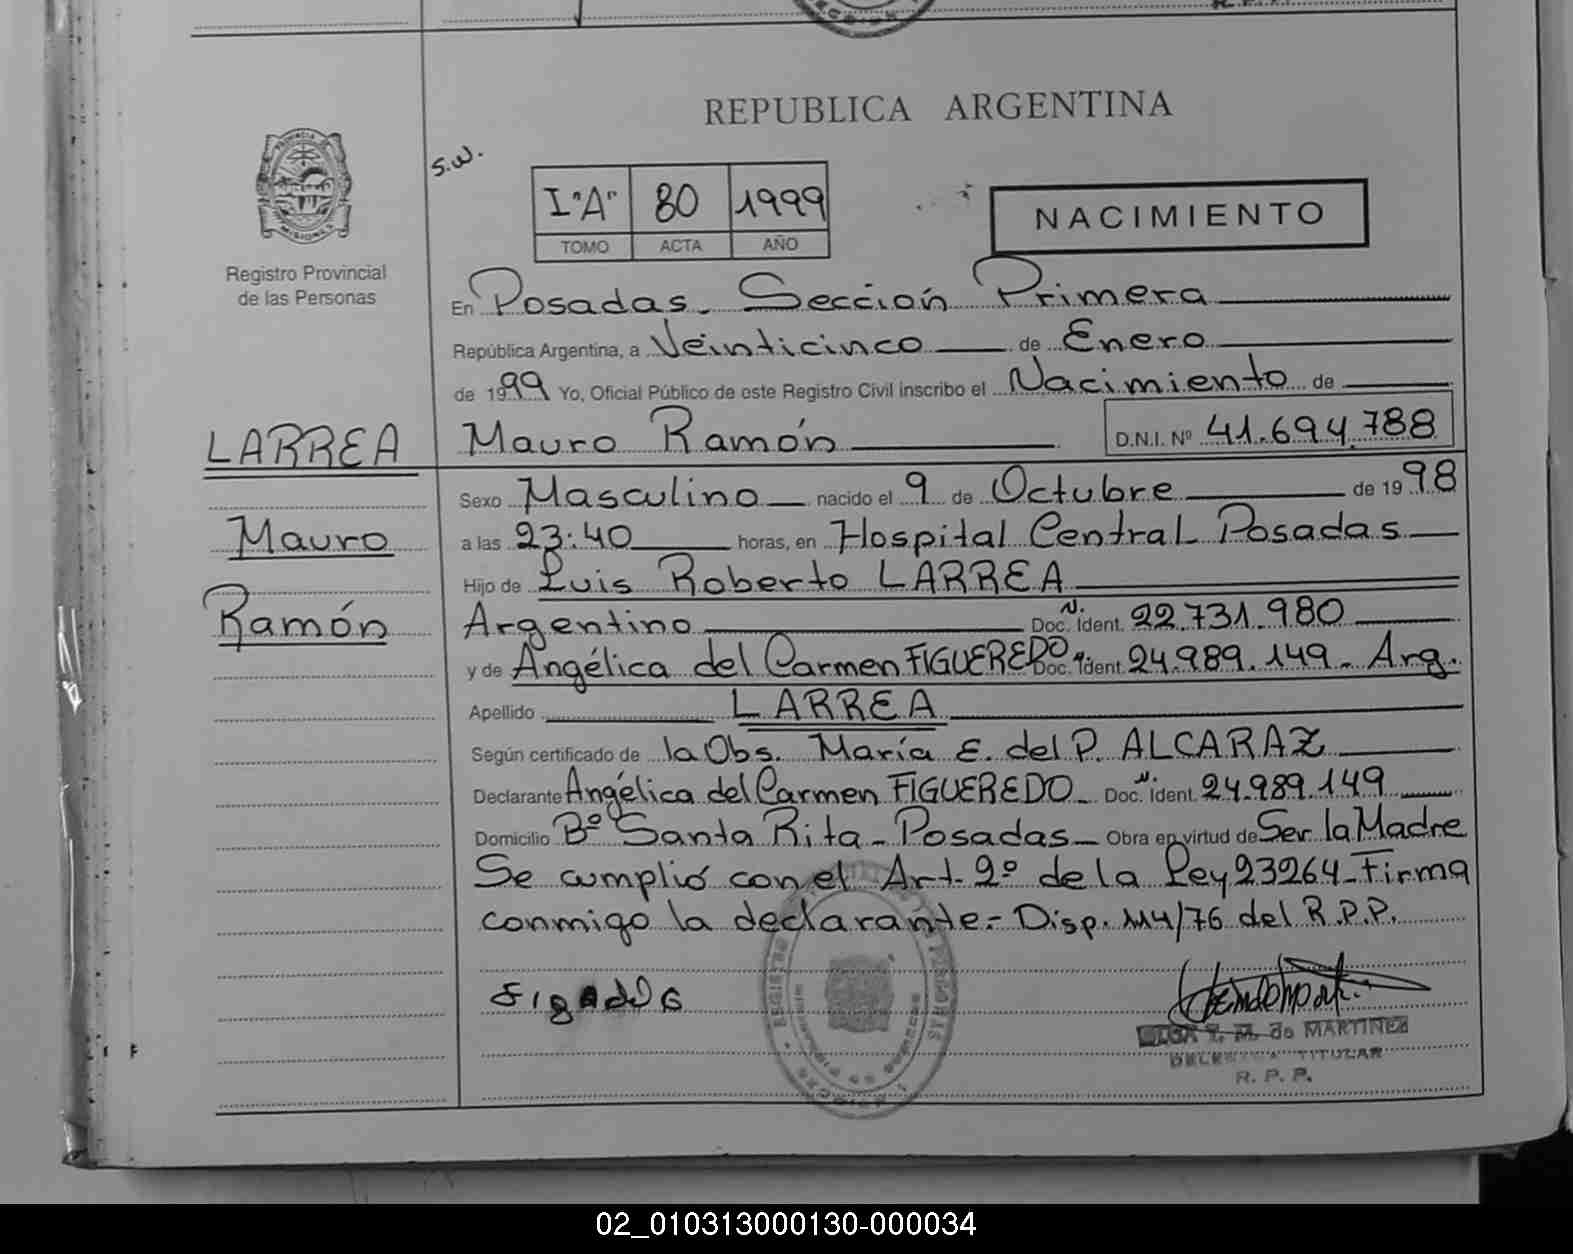 REPUBLICA ARGENTINA
s.w.
I "A" 80 1999
TOMO ACTA AÑO
NACIMIENTO
Registro Provincial
de las Personas
En Posadas. Sección Primera
República Argentina, a Veinticinco de Enero
de 1999 Yo, Oficial Público de este Registro Civil inscribo el Nacimiento de
LARREA Mauro Ramón D.N.I. Nº 41.694.788
Sexo Masculino nacido el 9 de Octubre de 1998
Mauro a las 23:40 horas, en Hospital Central Posadas
Hijo de Luis Roberto LARREA
Ramón Argentino Doc. N. Ident. 22.731.980
y de Angélica del Carmen FIGUEREDO Doc. N. Ident. 24.989.149 - Arg.
Apellido LARREA
Según certificado de la Obs. María E. del P. ALCARAZ
Declarante Angélica del Carmen FIGUEREDO Doc. N. Ident. 24.989.149
Domicilio Bº Santa Rita - Posadas - Obra en virtud de Ser la Madre
Se cumplió con el Art. 2º de la Ley 23264 - Firma
conmigo la declarante.- Disp. 114/76 del R.P.P.
T. M. de MARTINEZ
DELEGADA TITULAR
R. P. P.
02_010313000130-000034